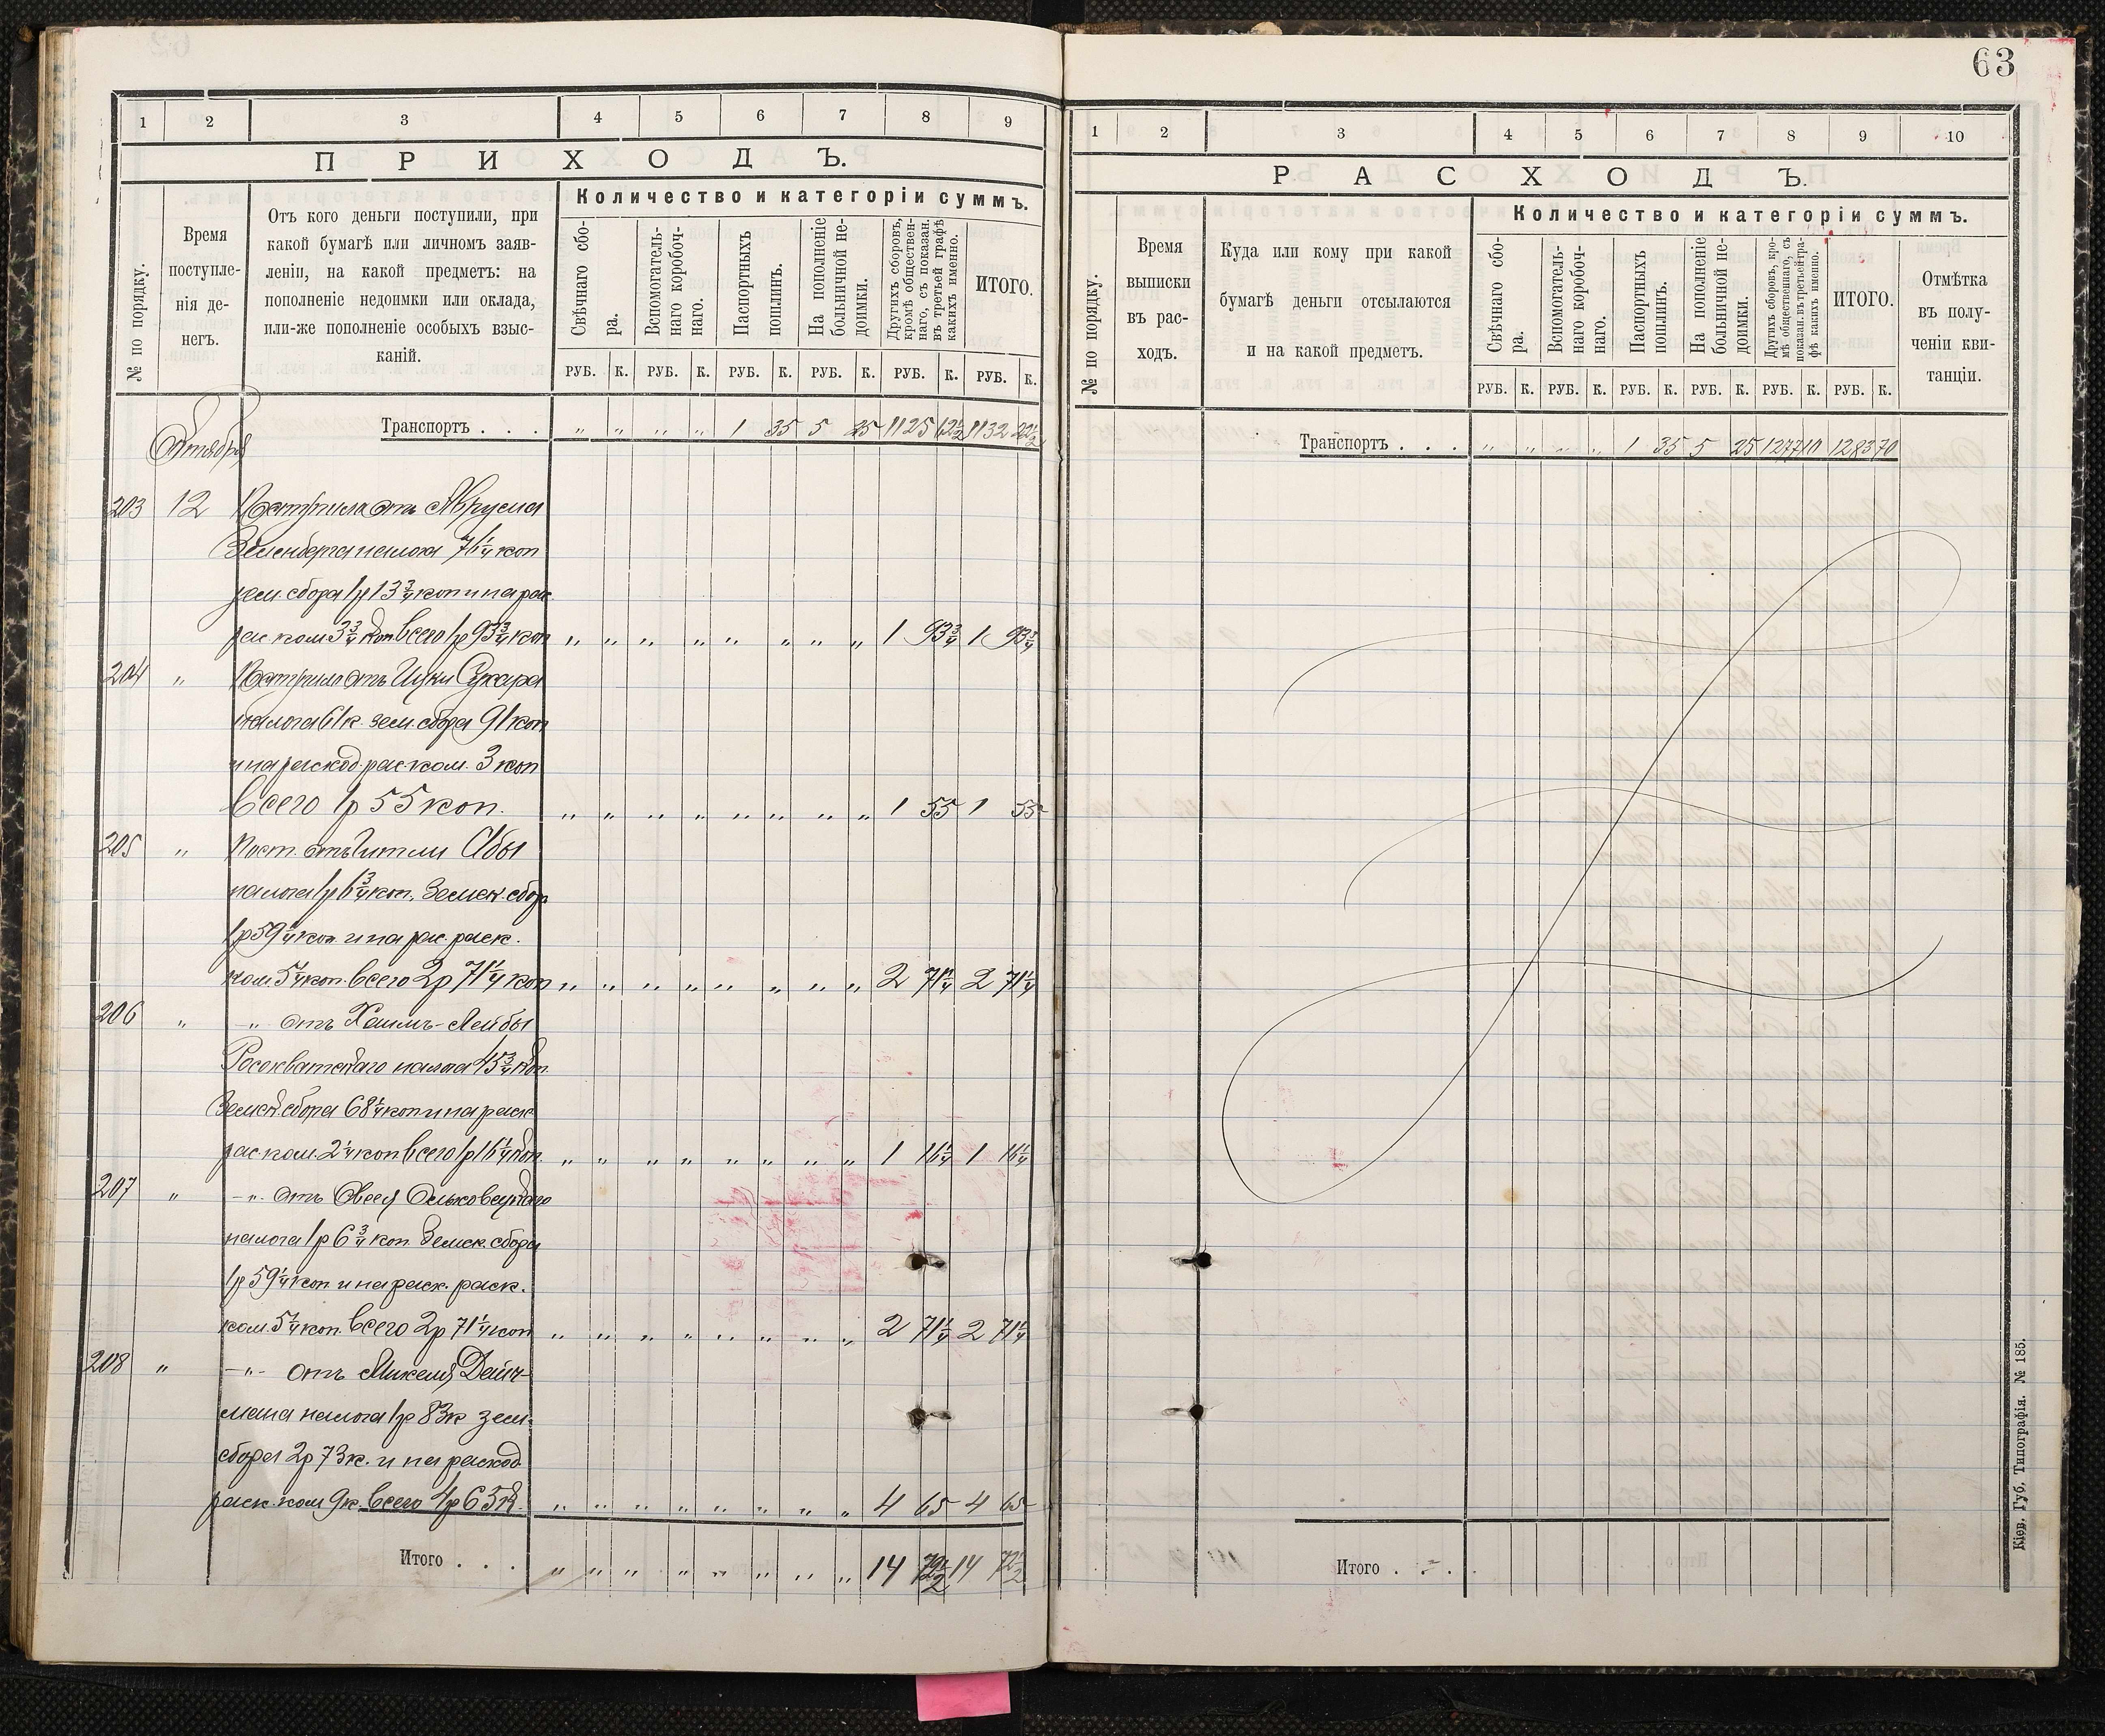 63
1 2 3 4 5 6 7 8 9
ПРИХОДЪ.
№ по порядку.
Время поступле-
нія де-
негъ.
Отъ кого деньги поступили, при
какой бумагѣ или личномъ заяв-
леніи, на какой предметъ: на
пополненіе недоимки или оклада,
или-же пополненіе особыхъ взыс-
каній.
Количество и категоріи суммъ.
Свѣчнаго сбо-
ра.
Вспомогатель-
наго коробоч-
наго.
Паспортныхъ
пошлинъ.
На пополненіе
больничной не-
доимки.
Другихъ сборовъ,
кромѣ обществен-
наго, съ показан.
въ третьей графѣ
какихъ именно.
ИТОГО.
РУБ. К. РУБ. К. РУБ. К. РУБ. К. РУБ. К. РУБ. К.
Транспортъ . . . " " " " 1 35 5 25 1125 62½ 1132 22½
Октября
203 12 Поступило отъ Аврума
Зеленберга налога 76¼ коп
зем. сбора 1р 13¾ коп и на рас.
рас. ком 3¾ коп всего 1р 93¾ коп " " " " " " " " 1 93¾ 1 93¾
204 " Поступило отъ Ицки Сухара
налога 61 к. зем. сбора 91 коп
и на расход. рас. ком. 3 коп
Всего 1р 55 коп. " " " " " " " " 1 55 1 55
205 " Пост. отъ Гитли Абы
налога 1р 6¾ коп. Земск. сбор
1р 59¼ коп и на рас. раск.
ком 5¼ коп. всего 2р 71¼ коп " " " " " " " " 2 71¼ 2 71¼
206 " -"- отъ Хаимъ-Лейбы
Росоховатскаго налога 45¾ коп.
Земск. сбора 68¼ коп и на раск
рас. ком. 2¼ коп всего 1р 16¼ коп. " " " " " " " " 1 16¼ 1 16¼
207 " -"- отъ Овсея
налога 1р 6¾ коп. Земск. сбора
1р 59¼ коп и на раск. раск.
ком. 5¼ коп. всего 2р 71¼ коп " " " " " " " " 2 71¼ 2 71¼
208 " -"- отъ Микеля Дейч-
мана налога 1р 83к зем.
сбора 2р 73к. и на расход.
раск. ком 9к. всего 4р 65к. " " " " " " " " 4 65 4 65
Итого . . . " " " " " " " " 14 72½ 14 72½
1 2 3 4 5 6 7 8 9 10
РАСХОДЪ.
№ по порядку.
Время
выписки
въ рас-
ходъ.
Куда или кому при какой
бумагѣ деньги отсылаются
и на какой предметъ.
Количество и категоріи суммъ.
Свѣчнаго сбо-
ра.
Вспомогатель-
наго коробоч-
наго.
Паспортныхъ
пошлинъ.
На пополненіе
больничной не-
доимки.
Другихъ сборовъ, кро-
мѣ общественнаго, съ
показан. въ третьей гра-
фѣ какихъ именно.
ИТОГО.
Отмѣтка
въ полу-
ченіи кви-
танціи.
РУБ. К. РУБ. К. РУБ. К. РУБ. К. РУБ. К. РУБ. К.
Транспортъ . . . " " " " 1 35 5 25 1277 10 1283 70
Итого . . .
Кіев. Губ. Типографія. № 185.